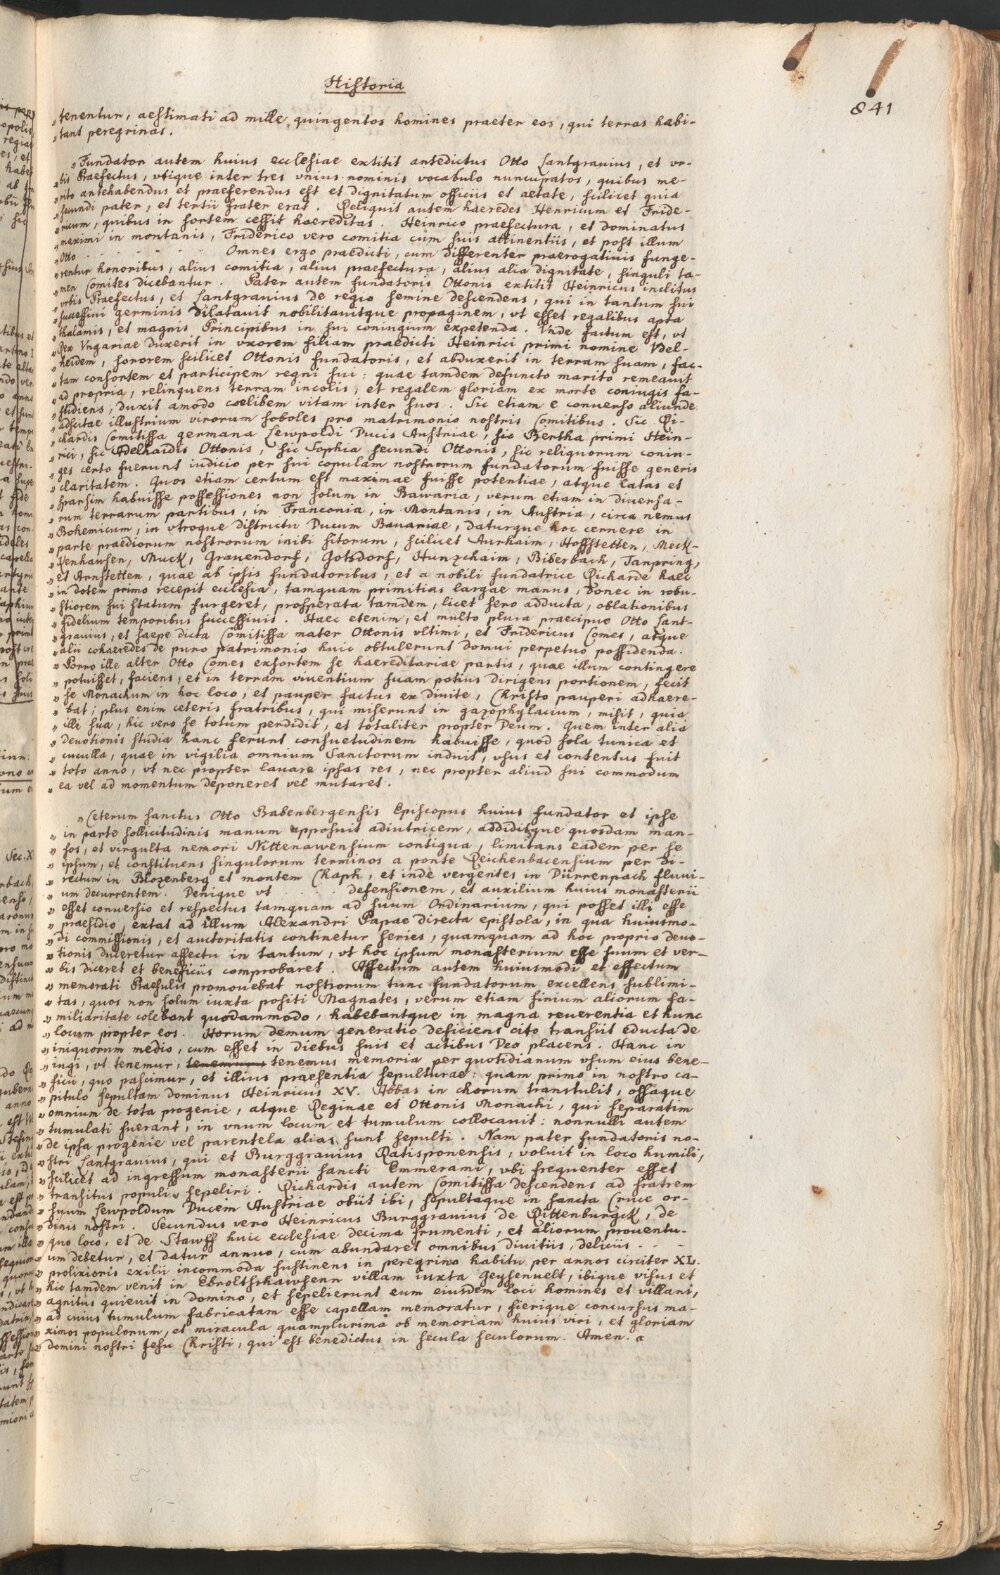 Historia
841
„tenentur, aestimati ad mille quingentos homines praeter eos, qui terras habi-
„tant peregrinas.
„Fundator autem huius ecclesiae extitit antedictus Otto Lantgrauius, et vr-
„bis Praefectus, vtique inter tres vnius nominis vocabulo nuncupatos, quibus me-
„rito antehabendus et praeferendus est et dignitatum officiis et aetate, scilicet quia
„secundi pater, et tertii frater erat. Reliquit autem haeredes Henricum et Fride-
„ricum, quibus in sortem cessit haereditas. Heinrico praefectura, et dominatus
„maximi in montanis, Friderico vero comitia cum suis attinentiis, et post illum
„Otto . . . . . . Omnes ergo praedicti, cum differenter praerogatiuis funge-
„rentur honoribus, alius comitia, alius praefectura, alius alia dignitate, singuli ta-
„men Comites dicebantur. Pater autem fundatoris Ottonis extitit Heinricus inclitus
„vrbis Praefectus, et Lantgrauius de regio semine descendens, qui in tantum sui
„successiui germinis dilatauit nobilitauitque propaginem, vt esset regalibus apta
„thalamis, et magnis Principibus in sui coniugium expetenda. Vnde factum est, vt
„Rex Vngariae duxerit in vxorem filiam praedicti Heinrici primi nomine Adel-
„heidem, sororem scilicet Ottonis fundatoris, et abduxerit in terram suam, fac-
„tam consortem et participem regni sui: quae tamdem defuncto marito remeauit
„ad propria, relinquens terram incolis, et regalem gloriam ex morte coniugis fa-
„stidiens, duxit amodo caelibem vitam inter suos. Sic etiam e conuerso aliunde
„adscitae illustrium virorum soboles pro matrimonio nostris Comitibus. Sic Ri-
„chardis Comitissa germana Lewpoldi Ducis Austriae, sic Bertha primi Hein-
„rici, sic Adelhaidis Ottonis, sic Sophia secundi Ottonis, sic reliquorum coniu-
„ges certo fuerunt iudicio per sui copulam nostrorum fundatorum fuisse generis
„claritatem. Quos etiam certum est maximae fuisse potentiae, atque latas et
„sparsim habuisse possessiones non solum in Bawaria, verum etiam in diuersa-
„rum terrarum partibus, in Franconia, in Montanis, in Austria, circa nemus
„Bohemicum, in vtroque districtu Ducum Bauariae, daturque hoc cernere in
„parte praediorum nostrorum inibi sitorum, scilicet Aurhaim, Hoffstetten, Meck-
„Venhausen, Muck, Grauendorf, Gotsdorf, Hunzchaim, Biberbach, Tanpring,
„et Arnstetten, quae ab ipsis fundatoribus, et a nobili fundatrice Richarde haec
„in dotem primo recepit ecclesia, tamquam primitias largae manus, donec in robu-
„stiorem sui statum surgeret, prosperata tamdem, licet sero adducta, oblationibus
„fidelium temporibus successiuis. Haec etenim, et multo plura praecipue Otto Lant-
„grauius, et saepe dicta Comitissa mater Ottonis vltimi, et Fridericus Comes, atque
„alii cohaeredes de puro patrimonio huic obtulerunt domui perpetuo possidenda.
„Porro ille alter Otto Comes exsortem se haereditariae partis, quae illum contingere
„potuisset, faciens, et in terram viuentium suam potius dirigens portionem, fecit
„se Monachum in hoc loco, et pauper factus ex diuite, Christo pauperi adhaere-
„bat; plus enim ceteris fratribus, qui miserunt in gazophylacium, misit, quia
„illi sua, hic vero se totum perdidit, et totaliter propter Deum. Quem inter alia
„deuotionis studia hanc ferunt consuetudinem habuisse, quod sola tunica et
„cuculla, quae in vigilia omnium Sanctorum induit, vsus et contentus fuit
„toto anno, vt nec propter lauare ipsas res, nec propter aliud sui commodum
„ea vel ad momentum deponeret vel mutaret.
„Ceterum sanctus Otto Babenbergensis Episcopus huius fundator et ipse
„in parte sollicitudinis manum apposuit adiutricem, addiditque quosdam man-
„sos, et virgulta nemori Nittenawensium contigua, limitans eadem per se
„ipsum, et constituens singulorum terminos a ponte Reichenbacensium per di-
„rectum in Blozenberg et montem Chaph, et inde vergentes in Dürrenpach fluui-
„um decurrentem. Denique vt . . . . defensionem, et auxilium huius monasterii
„esset conuersio et respectus tamquam ad suum Ordinarium, qui posset illi esse
„praesidio, extat ad illum Alexandri Papae directa epistola, in qua huiusmo-
„di commissionis, et auctoritatis continetur series, quamquam ad hoc proprio deuo-
„tionis duceretur affectu in tantum, vt hoc ipsum monasterium esse suum et ver-
„bis diceret et beneficiis comprobaret. Affectum autem huiusmodi et effectum
„memorati Praesulis promouebat nostrorum tunc fundatorum excellens sublimi-
„tas, quos non solum iuxta positi Magnates, verum etiam finium aliorum fa-
„miliaritate colebant quodammodo, habebantque in magna reuerentia et hunc
„locum propter eos. Horum demum generatio deficiens cito transiit educta de
„iniquorum medio, cum esset in diebus suis et actibus Deo placens. Hanc in
„iugi, vt tenemur, tenemus memoria per quotidianum vsum eius bene-
„ficii, quo pascimur, et illius praesentia sepulturae: quam primo in nostro ca-
„pitulo sepultam dominus Heinricus XV. Abbas in chorum transtulit, ossaque
„omnium de tota progenie, atque Reginae et Ottonis Monachi, qui separatim
„tumulati fuerant, in vnum locum et tumulum collocauit: nonnulli autem
„de ipsa progenie vel parentela alias sunt sepulti. Nam pater fundatoris no-
„stri Lantgrauius, qui et Burggrauius Ratisponensis, voluit in loco humili,
„scilicet ad ingressum monasterii sancti Emmerami, vbi frequenter esset
„transitus populi, sepeliri. Richardis autem Comitissa descendens ad fratrem
„suum Lewpoldum Ducem Austriae obiit ibi, sepultaque in sancta Cruce or-
„dinis nostri. Secundus vero Heinricus Burggrauius de Rittenburgck, de
„quo loco, et de Stawff huic ecclesiae decima frumenti, et aliorum prouentu-
„um debetur, et datur annuo, cum abundaret omnibus diuitiis, deliciis . . .
„prolixioris exilii incommoda sustinens in peregrino habitu per annos circiter XL.
„hic tamdem venit in Ebrolthshawsenn villam iuxta Geysenuelt, ibique visus et
„agnitus quieuit in domino, et sepelierunt eum eiusdem loci homines et villani,
„ad cuius tumulum fabricatam esse capellam memoratur, fierique concursus ma-
„ximos populorum, et miracula quamplurima ob memoriam huius viri, et gloriam
„domini nostri Jesu Christi, qui est benedictus in secula seculorum. Amen. a
5